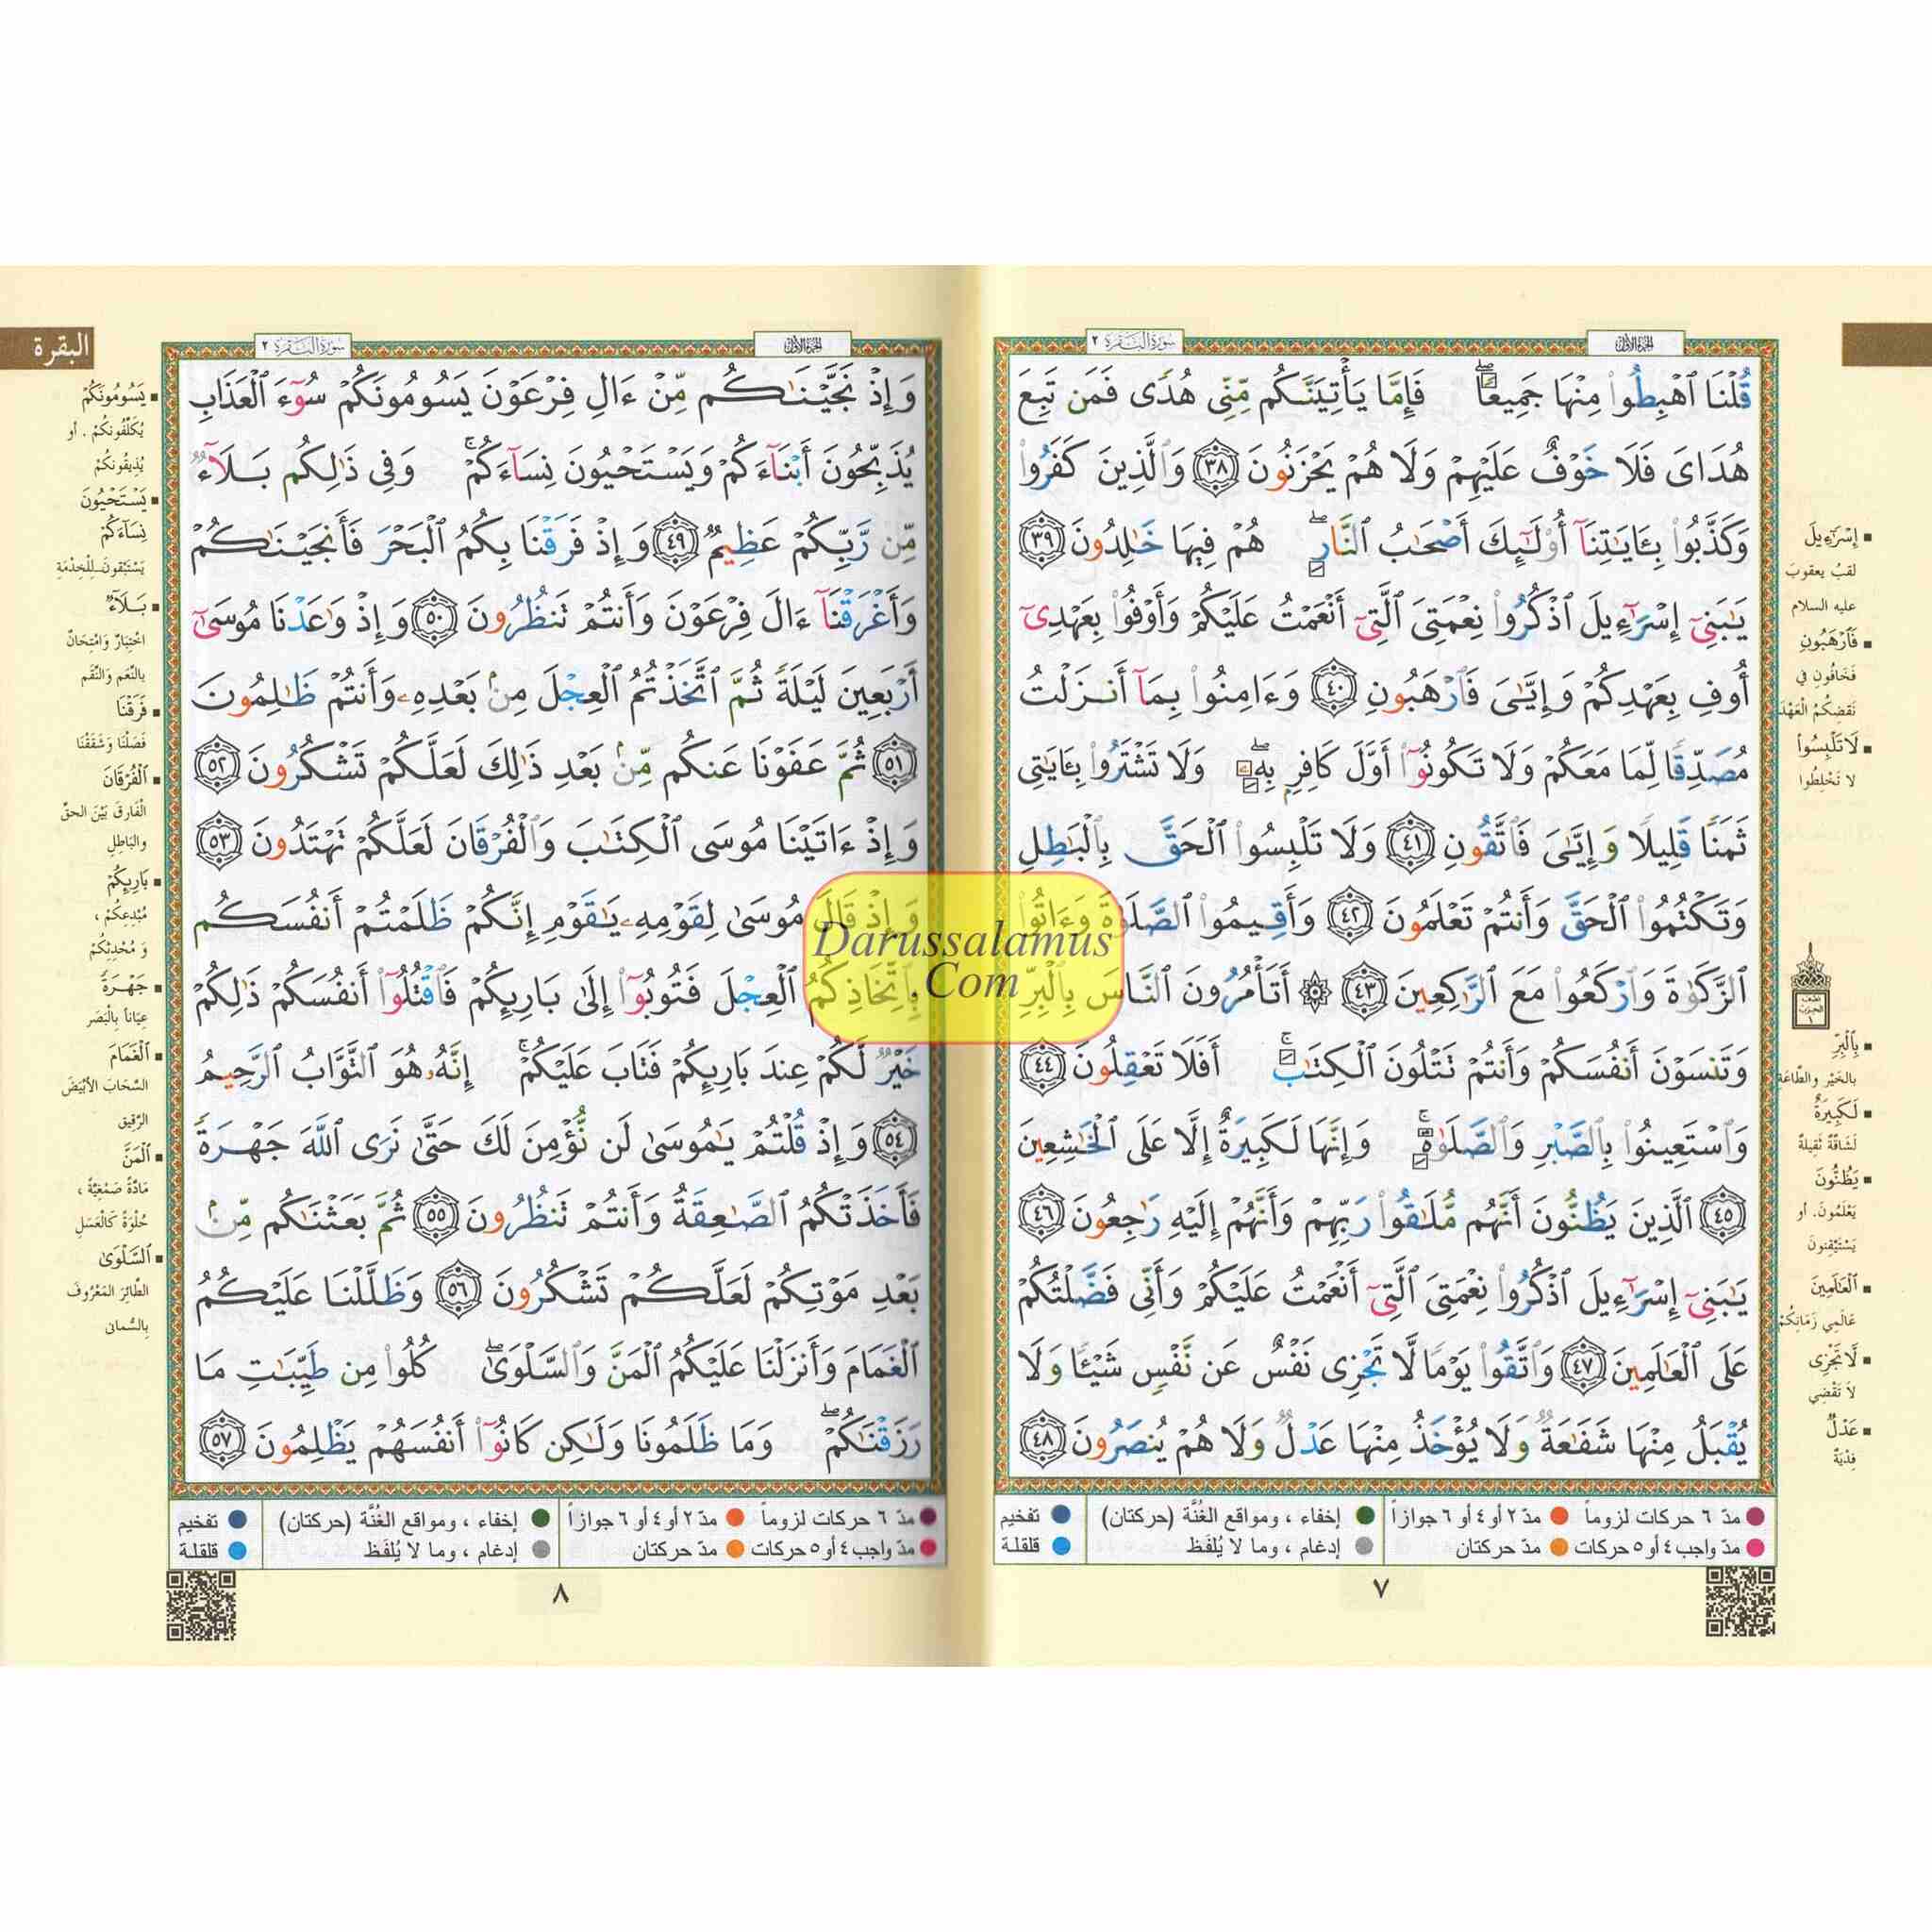 الجزء الأول
سورة البقرة ٢
قُلْنَا ٱهْبِطُوا۟ مِنْهَا جَمِيعًۭا ۖ فَإِمَّا يَأْتِيَنَّكُم مِّنِّى هُدًۭى فَمَن تَبِعَ
هُدَاىَ فَلَا خَوْفٌ عَلَيْهِمْ وَلَا هُمْ يَحْزَنُونَ ٣٨ وَٱلَّذِينَ كَفَرُوا۟
وَكَذَّبُوا۟ بِـَٔايَـٰتِنَآ أُو۟لَـٰٓئِكَ أَصْحَـٰبُ ٱلنَّارِ ۖ هُمْ فِيهَا خَـٰلِدُونَ ٣٩
يَـٰبَنِىٓ إِسْرَٰٓءِيلَ ٱذْكُرُوا۟ نِعْمَتِىَ ٱلَّتِىٓ أَنْعَمْتُ عَلَيْكُمْ وَأَوْفُوا۟ بِعَهْدِىٓ
أُوفِ بِعَهْدِكُمْ وَإِيَّـٰىَ فَٱرْهَبُونِ ٤٠ وَءَامِنُوا۟ بِمَآ أَنزَلْتُ
مُصَدِّقًۭا لِّمَا مَعَكُمْ وَلَا تَكُونُوٓا۟ أَوَّلَ كَافِرٍۭ بِهِۦ ۖ وَلَا تَشْتَرُوا۟ بِـَٔايَـٰتِى
ثَمَنًۭا قَلِيلًۭا وَإِيَّـٰىَ فَٱتَّقُونِ ٤١ وَلَا تَلْبِسُوا۟ ٱلْحَقَّ بِٱلْبَـٰطِلِ
وَتَكْتُمُوا۟ ٱلْحَقَّ وَأَنتُمْ تَعْلَمُونَ ٤٢ وَأَقِيمُوا۟ ٱلصَّلَوٰةَ وَءَاتُوا۟
ٱلزَّكَوٰةَ وَٱرْكَعُوا۟ مَعَ ٱلرَّٰكِعِينَ ٤٣ ۞ أَتَأْمُرُونَ ٱلنَّاسَ بِٱلْبِرِّ
وَتَنسَوْنَ أَنفُسَكُمْ وَأَنتُمْ تَتْلُونَ ٱلْكِتَـٰبَ ۚ أَفَلَا تَعْقِلُونَ ٤٤
وَٱسْتَعِينُوا۟ بِٱلصَّبْرِ وَٱلصَّلَوٰةِ ۚ وَإِنَّهَا لَكَبِيرَةٌ إِلَّا عَلَى ٱلْخَـٰشِعِينَ
٤٥ ٱلَّذِينَ يَظُنُّونَ أَنَّهُم مُّلَـٰقُوا۟ رَبِّهِمْ وَأَنَّهُمْ إِلَيْهِ رَٰجِعُونَ ٤٦
يَـٰبَنِىٓ إِسْرَٰٓءِيلَ ٱذْكُرُوا۟ نِعْمَتِىَ ٱلَّتِىٓ أَنْعَمْتُ عَلَيْكُمْ وَأَنِّى فَضَّلْتُكُمْ
عَلَى ٱلْعَـٰلَمِينَ ٤٧ وَٱتَّقُوا۟ يَوْمًۭا لَّا تَجْزِى نَفْسٌ عَن نَّفْسٍۢ شَيْـًۭٔا وَلَا
يُقْبَلُ مِنْهَا شَفَـٰعَةٌۭ وَلَا يُؤْخَذُ مِنْهَا عَدْلٌۭ وَلَا هُمْ يُنصَرُونَ ٤٨
إِسْرَٰٓءِيلَ
لقبُ يعقوبَ
عليه السلام
فَٱرْهَبُونِ
فَخَافُونِ في
نَقضِكُمُ الْعَهْدَ
لَا تَلْبِسُوا۟
لا تَخْلِطُوا
بِٱلْبِرِّ
بالخَيْرِ والطَّاعَة
لَكَبِيرَةٌ
لَشَاقَّةٌ ثَقِيلَةٌ
يَظُنُّونَ
يَعْلَمُونَ. أو
يَسْتَيْقِنونَ
ٱلْعَـٰلَمِينَ
عَالَمِي زَمَانِكُمْ
لَّا تَجْزِى
لَا تَقْضِي
عَدْلٌ
فِدْيَةٌ
مدّ ٦ حركات لزوماً مدّ ٢ أو ٤ أو ٦ جوازاً إخفاء ، ومواقع الغُنَّة (حركتان) تفخيم
مدّ واجب ٤ أو ٥ حركات مدّ حركتان إدغام ، وما لا يُلفَظ قلقلة
٧
البقرة
الجزء الأول
سورة البقرة ٢
وَإِذْ نَجَّيْنَـٰكُم مِّنْ ءَالِ فِرْعَوْنَ يَسُومُونَكُمْ سُوٓءَ ٱلْعَذَابِ
يُذَبِّحُونَ أَبْنَآءَكُمْ وَيَسْتَحْيُونَ نِسَآءَكُمْ ۚ وَفِى ذَٰلِكُم بَلَآءٌۭ
مِّن رَّبِّكُمْ عَظِيمٌۭ ٤٩ وَإِذْ فَرَقْنَا بِكُمُ ٱلْبَحْرَ فَأَنجَيْنَـٰكُمْ
وَأَغْرَقْنَآ ءَالَ فِرْعَوْنَ وَأَنتُمْ تَنظُرُونَ ٥٠ وَإِذْ وَٰعَدْنَا مُوسَىٰٓ
أَرْبَعِينَ لَيْلَةًۭ ثُمَّ ٱتَّخَذْتُمُ ٱلْعِجْلَ مِنۢ بَعْدِهِۦ وَأَنتُمْ ظَـٰلِمُونَ
٥١ ثُمَّ عَفَوْنَا عَنكُم مِّنۢ بَعْدِ ذَٰلِكَ لَعَلَّكُمْ تَشْكُرُونَ ٥٢
وَإِذْ ءَاتَيْنَا مُوسَى ٱلْكِتَـٰبَ وَٱلْفُرْقَانَ لَعَلَّكُمْ تَهْتَدُونَ ٥٣
وَإِذْ قَالَ مُوسَىٰ لِقَوْمِهِۦ يَـٰقَوْمِ إِنَّكُمْ ظَلَمْتُمْ أَنفُسَكُم
بِٱتِّخَاذِكُمُ ٱلْعِجْلَ فَتُوبُوٓا۟ إِلَىٰ بَارِئِكُمْ فَٱقْتُلُوٓا۟ أَنفُسَكُمْ ذَٰلِكُمْ
خَيْرٌۭ لَّكُمْ عِندَ بَارِئِكُمْ فَتَابَ عَلَيْكُمْ ۚ إِنَّهُۥ هُوَ ٱلتَّوَّابُ ٱلرَّحِيمُ
٥٤ وَإِذْ قُلْتُمْ يَـٰمُوسَىٰ لَن نُّؤْمِنَ لَكَ حَتَّىٰ نَرَى ٱللَّهَ جَهْرَةًۭ
فَأَخَذَتْكُمُ ٱلصَّـٰعِقَةُ وَأَنتُمْ تَنظُرُونَ ٥٥ ثُمَّ بَعَثْنَـٰكُم مِّنۢ
بَعْدِ مَوْتِكُمْ لَعَلَّكُمْ تَشْكُرُونَ ٥٦ وَظَلَّلْنَا عَلَيْكُمُ
ٱلْغَمَامَ وَأَنزَلْنَا عَلَيْكُمُ ٱلْمَنَّ وَٱلسَّلْوَىٰ ۖ كُلُوا۟ مِن طَيِّبَـٰتِ مَا
رَزَقْنَـٰكُمْ ۖ وَمَا ظَلَمُونَا وَلَـٰكِن كَانُوٓا۟ أَنفُسَهُمْ يَظْلِمُونَ ٥٧
يَسُومُونَكُمْ
يُكَلِّفُونكُمْ . أو
يُذيقُونكُمْ
يَسْتَحْيُونَ
نِسَآءَكُمْ
يَسْتَبْقونَـ لِلْخِدْمَةِ
بَلَآءٌ
اخْتِبَارٌ وَامْتِحَانٌ
بالنِّعَم وَالنِّقَم
فَرَقْنَا
فَصَلْنَا وَشَقَقْنَا
ٱلْفُرْقَانَ
الْفَارِقَ بَيْنَ الحقِّ
والبَاطِلِ
بَارِئِكُمْ
مُبْدِعِكُمْ ،
وَ مُحْدِثِكُمْ
جَهْرَةً
عِيَاناً بِالْبَصَر
ٱلْغَمَامَ
السَّحَابَ الأَبْيَضَ
الرَّقِيق
ٱلْمَنَّ
مَادَّةً صَمْغِيَّةً ،
حُلْوَةً كَالْعَسَلِ
ٱلسَّلْوَىٰ
الطَّائِرَ المَعْرُوفَ
بِالسُّمانى
مدّ ٦ حركات لزوماً مدّ ٢ أو ٤ أو ٦ جوازاً إخفاء ، ومواقع الغُنَّة (حركتان) تفخيم
مدّ واجب ٤ أو ٥ حركات مدّ حركتان إدغام ، وما لا يُلفَظ قلقلة
٨
Darussalamus
.Com